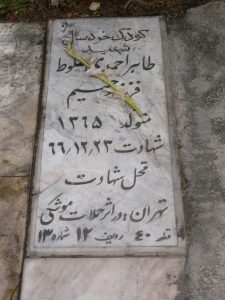 کودک خردسال
شهید
طاهر احمدی بلوط
فرزند رحیم
متولد ۱۳۶۵
شهادت ۶۶/۱۲/۲۳
محل شهادت
تهران: در اثر حملات موشکی
قطعه ۴۰ ردیف ۱۲ شماره ۱۳